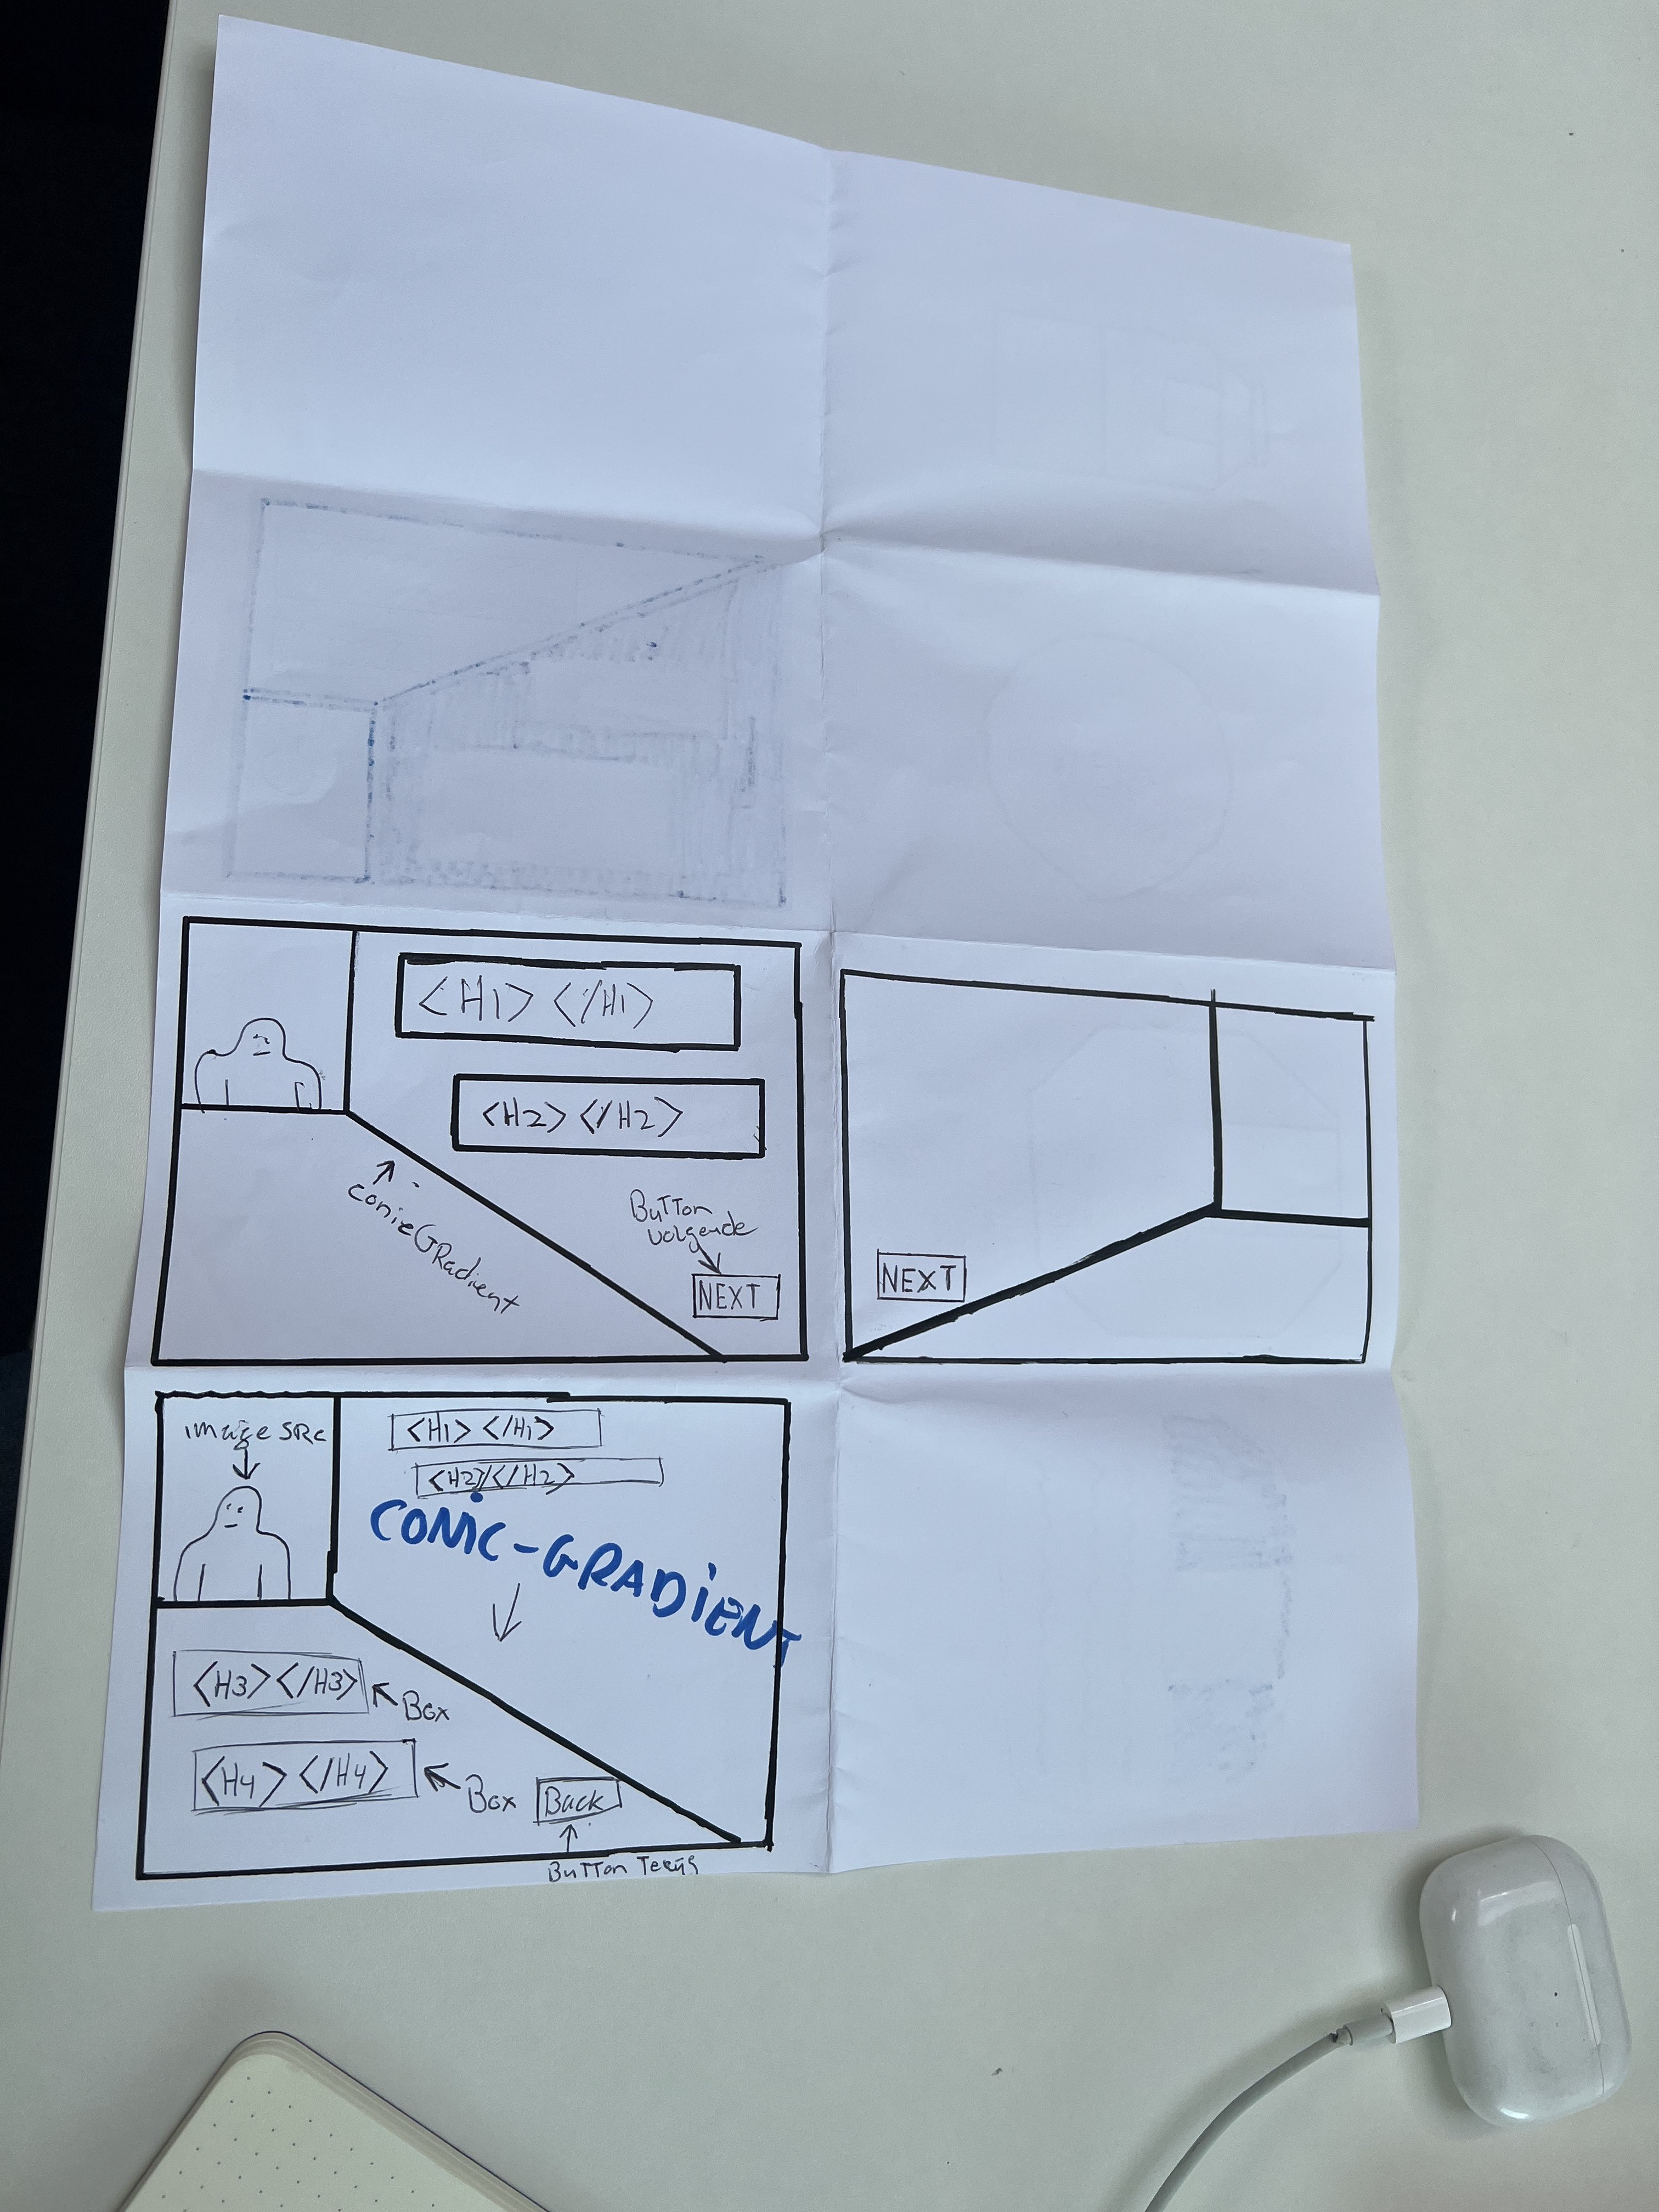 <H1> </H1>
<H2> </H2>
conicGRadient
BuTTon
volgende
NEXT
NEXT
image SRC
<H1> </H1>
<H2> </H2>
CONiC-GRADiENT
<H3> </H3>
Box
<H4> </H4>
Box
Back
BuTTon Terug